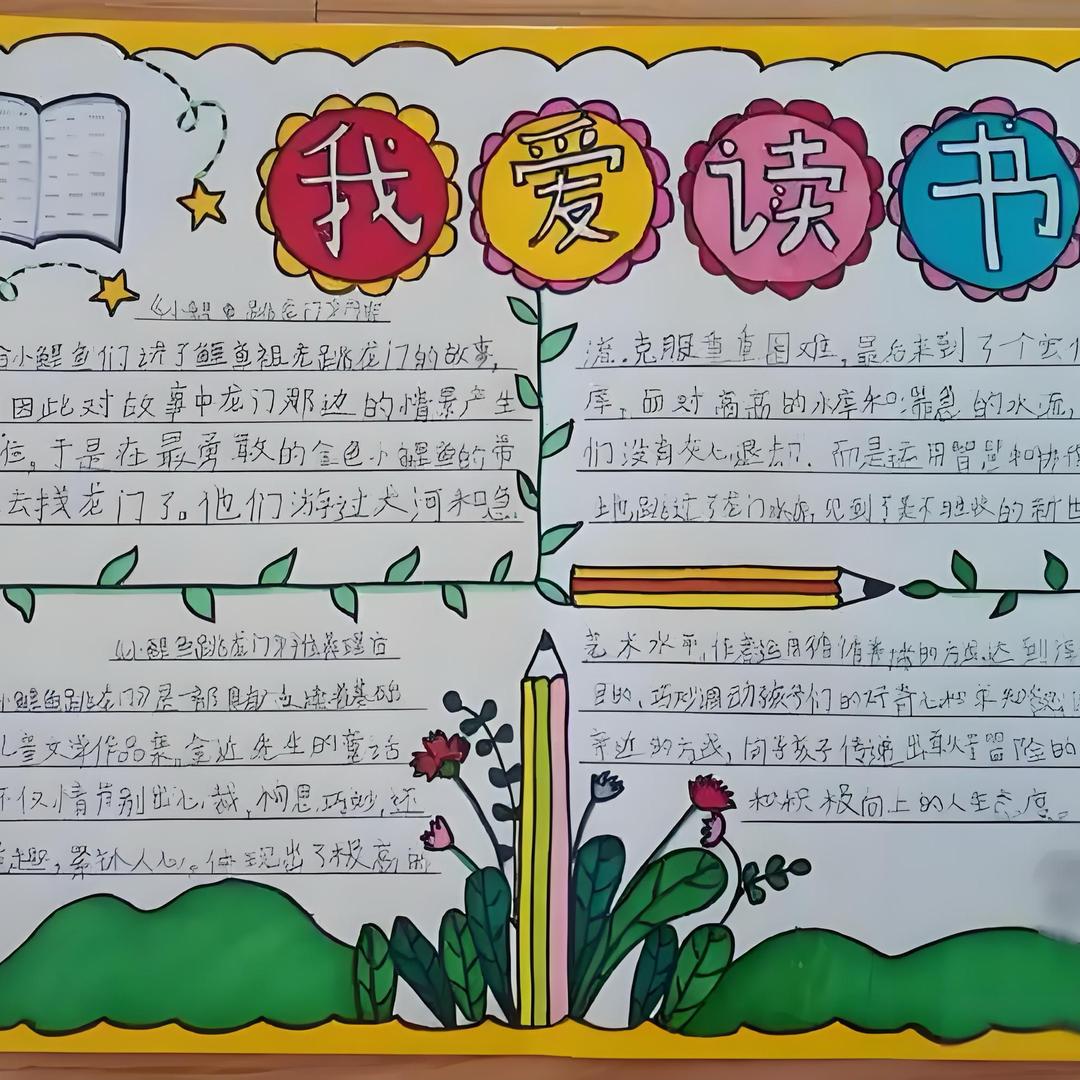 我爱读书
小鲤鱼们讲了鲤鱼祖先跳龙门的故事,
因此对故事中龙门那边的情景产生
于是在最勇敢的金色小鲤鱼的带
去找龙门了。他们游过大河和急
流。克服重重困难,最后来到了个
库。面对高高的水库和湍急的水流,
们没有灰心退却,而是运用智慧和
地跳过了龙门水库,见到了美不胜收的新世
小鲤鱼跳龙门
小鲤鱼跳龙门
儿童文学作品集。金近先生的童话
不仅情节别出心裁,构思巧妙,还
趣,紧扣人心。体现出了极高的
艺术水平。作者运用
目的,巧妙调动孩子们的好奇心和求知
亲近的方式,向孩子传递出
和积极向上的人生态度。